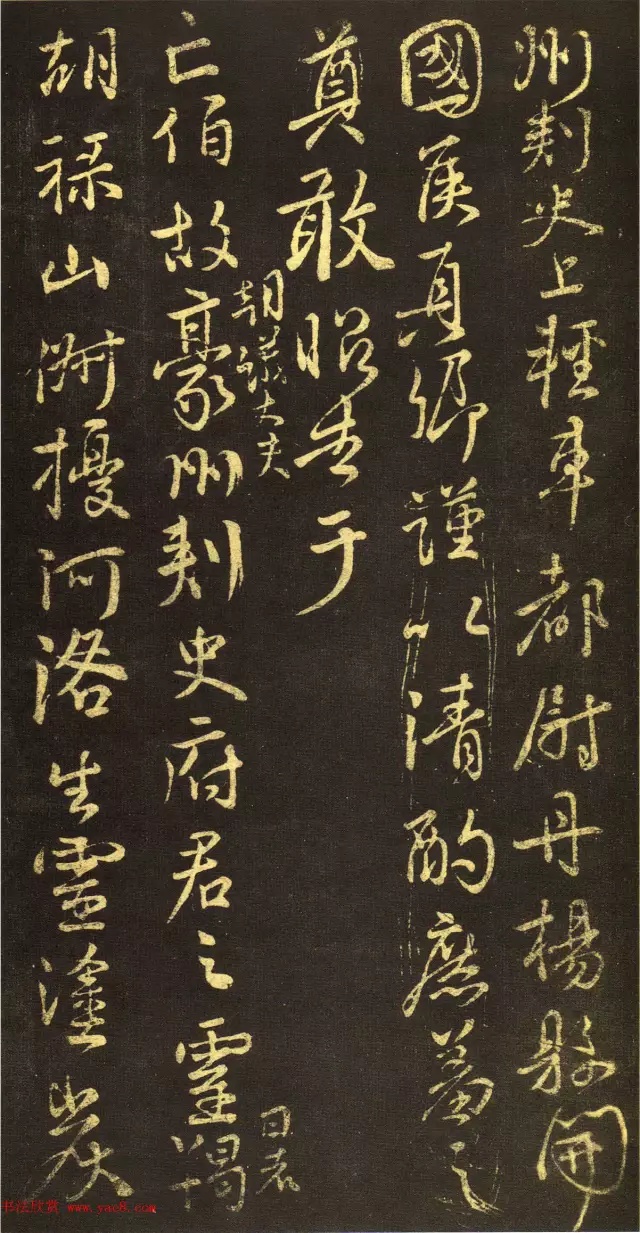 州刺史上輕車都尉丹楊縣開
國侯真卿謹以清酌庶羞之
奠敢昭告于
朝議大夫
日者
亡伯故豪州刺史府君之靈羯
胡祿山俶擾河洛生靈塗炭
书法欣赏 www.yac8.com